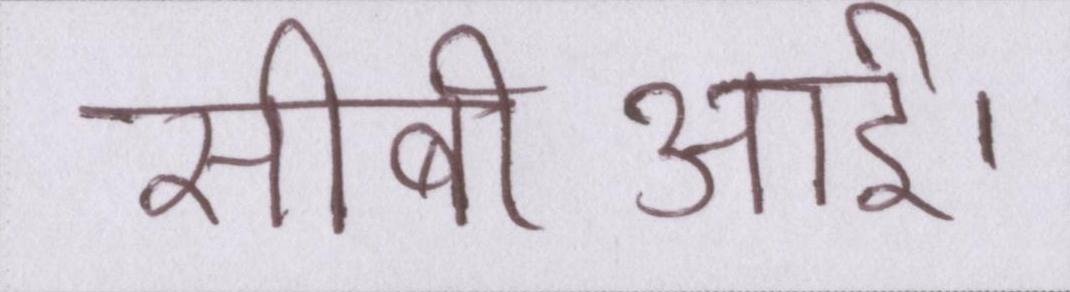 सीबी आई।